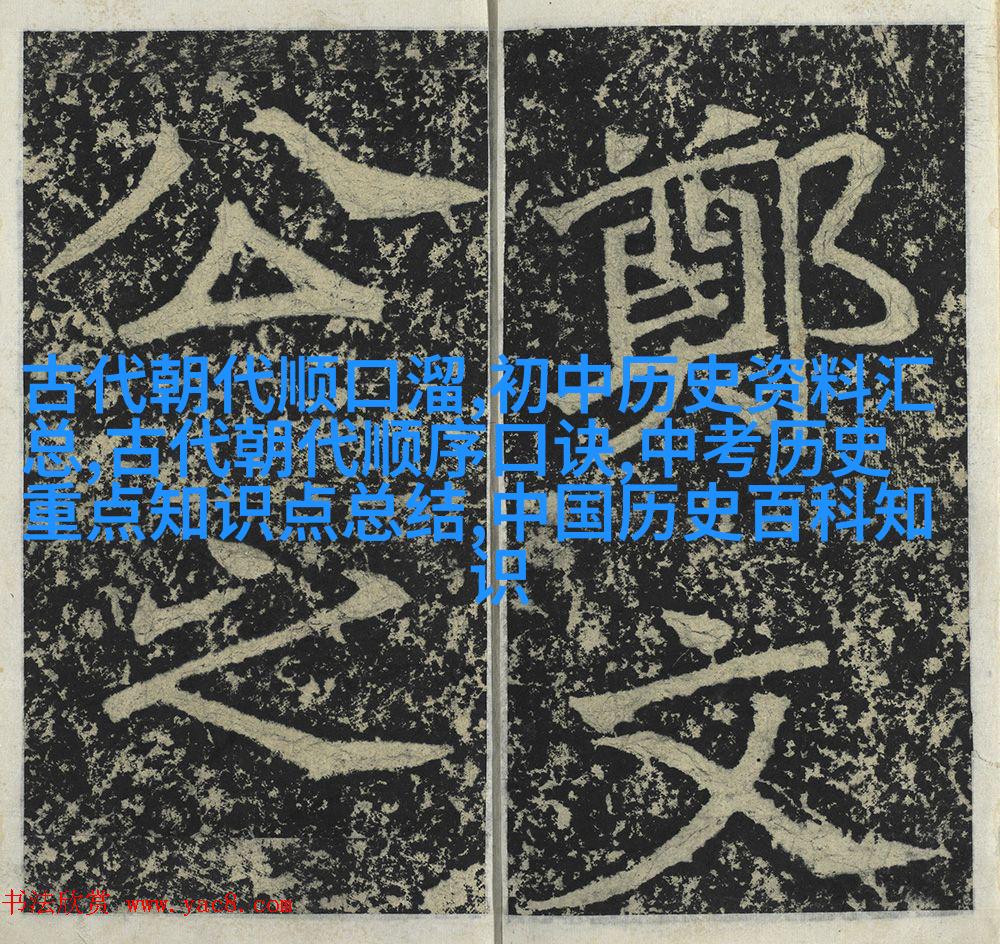 鄭文
公之
古代朝代顺口溜,初中历史资料汇
总,古代朝代顺序口诀,中考历史
重点知识点总结,中国历史百科知
识
书法欣赏 www.yac8.com